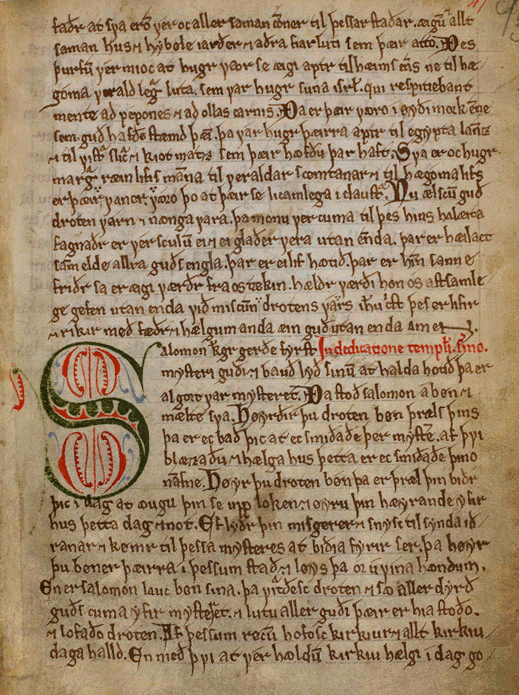 fadr at sva ero ver oc aller saman comner til þessar stadar. æigu allt
saman hus ⁊ hybole iarder ⁊ adra fiarluti sem þæir atto. Þes
þurfum ver mioc at hugr vaor se æigi aptir til hæimsens ne til hæ-
goma veraldlegra luta, sem var hugr suna isrł. qui respitiebant
mente ad pepones ⁊ ad ollas carnis. Þa er þæir varo i œydimork
sem gud hafde þa var hugr þæirra aptir til egypta lanz
⁊ til kiot matar sem þæir hofdu þar haft. Sva er oc hugr
margra ræinlifis manna til veraldar scemtanar ⁊ til hægomalifs
er þæir vaner varo þo at þæir se licamlega i claustrum. Nu ælscum gud
droten varn ⁊ nænga vara. þa monu ver cuma til þes hins halæita
fagnadr er ver sculum æi ⁊ æi glader vera utan ænda. þar er hæilact
samelde allra guds engla. þar er æilif hotid. þar er hin sanne
fridr sa er æigi værdr fra os tekin. hældr værdi hon os allsamle-
ge gefen utan enda vid miscunn drotens vars ihu xpi þes er lifir
⁊ rikir med fædr ⁊ hælgum anda æin gud utan enda amen.
Salomon kgr gerde fyrst In dedicatione templi. sermo.
mysteri gudi ⁊ baud lyd sinum at halda hotid þa er
algort var mysteret. Þa stod salomon a bøn ⁊
mælte sva. Høyrdu þu droten bøn þræls þins
þa er ec bad þic at ec smidade þer myste. at þu
blezadu ⁊ hælga hus þetta er ec smidade þino
nafne. Høyr þu droten bøn þa er þræl þin bidr
þic i dag at ougu þin se upp loken ⁊ øyru þin høyrande yfir
hus þetta dag ⁊ not. Ef lydr þin misgerer ⁊ snysc til synda id-
ranar ⁊ kœmr til þessa mysteres at bidia fyrir ser. þa høyr
þu bøner þæirra i þessum stad ⁊ løys þa or uvina hændum.
En er salomon lauc bøn sina. þa droten ⁊ so aller dyrd
guds cuma yfir ⁊ lutu aller gudi þæir er hia stodo.
⁊ lofado droten. Af þessum hofosc kirkiur ⁊ allt kirkiu
daga halld. En med þvi at ver hældum kirkiu hælgi i dag go-